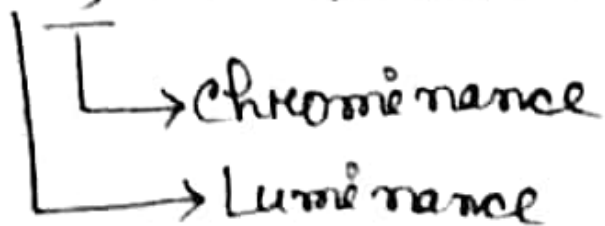 Chrominance
Luminance